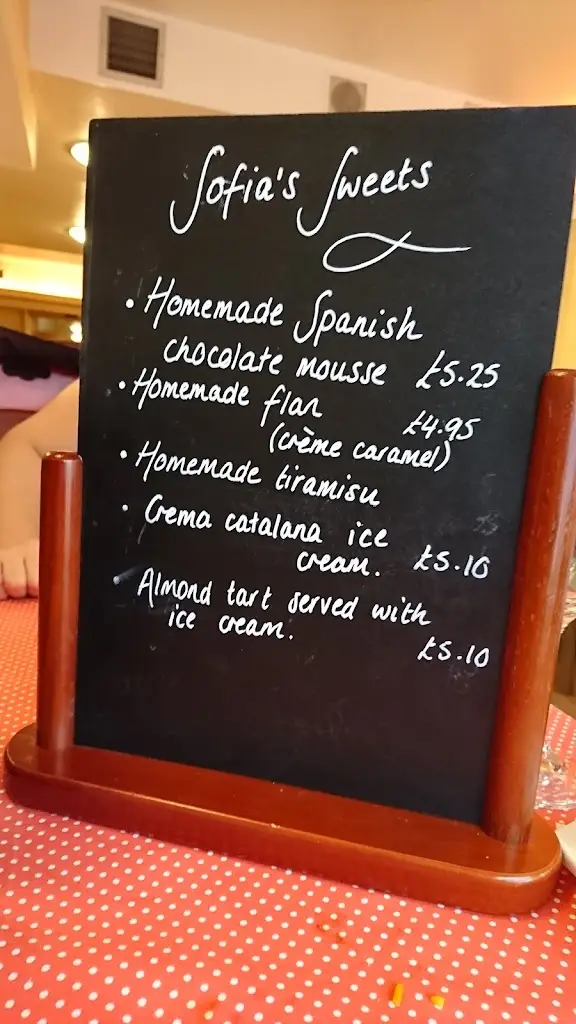 Sofia's Sweets
• Homemade Spanish
chocolate mousse £5.25
• Homemade flan £4.95
(crème caramel)
• Homemade tiramisu
• Crema catalana ice
cream. £5.10
• Almond tart served with
ice cream.
£5.10